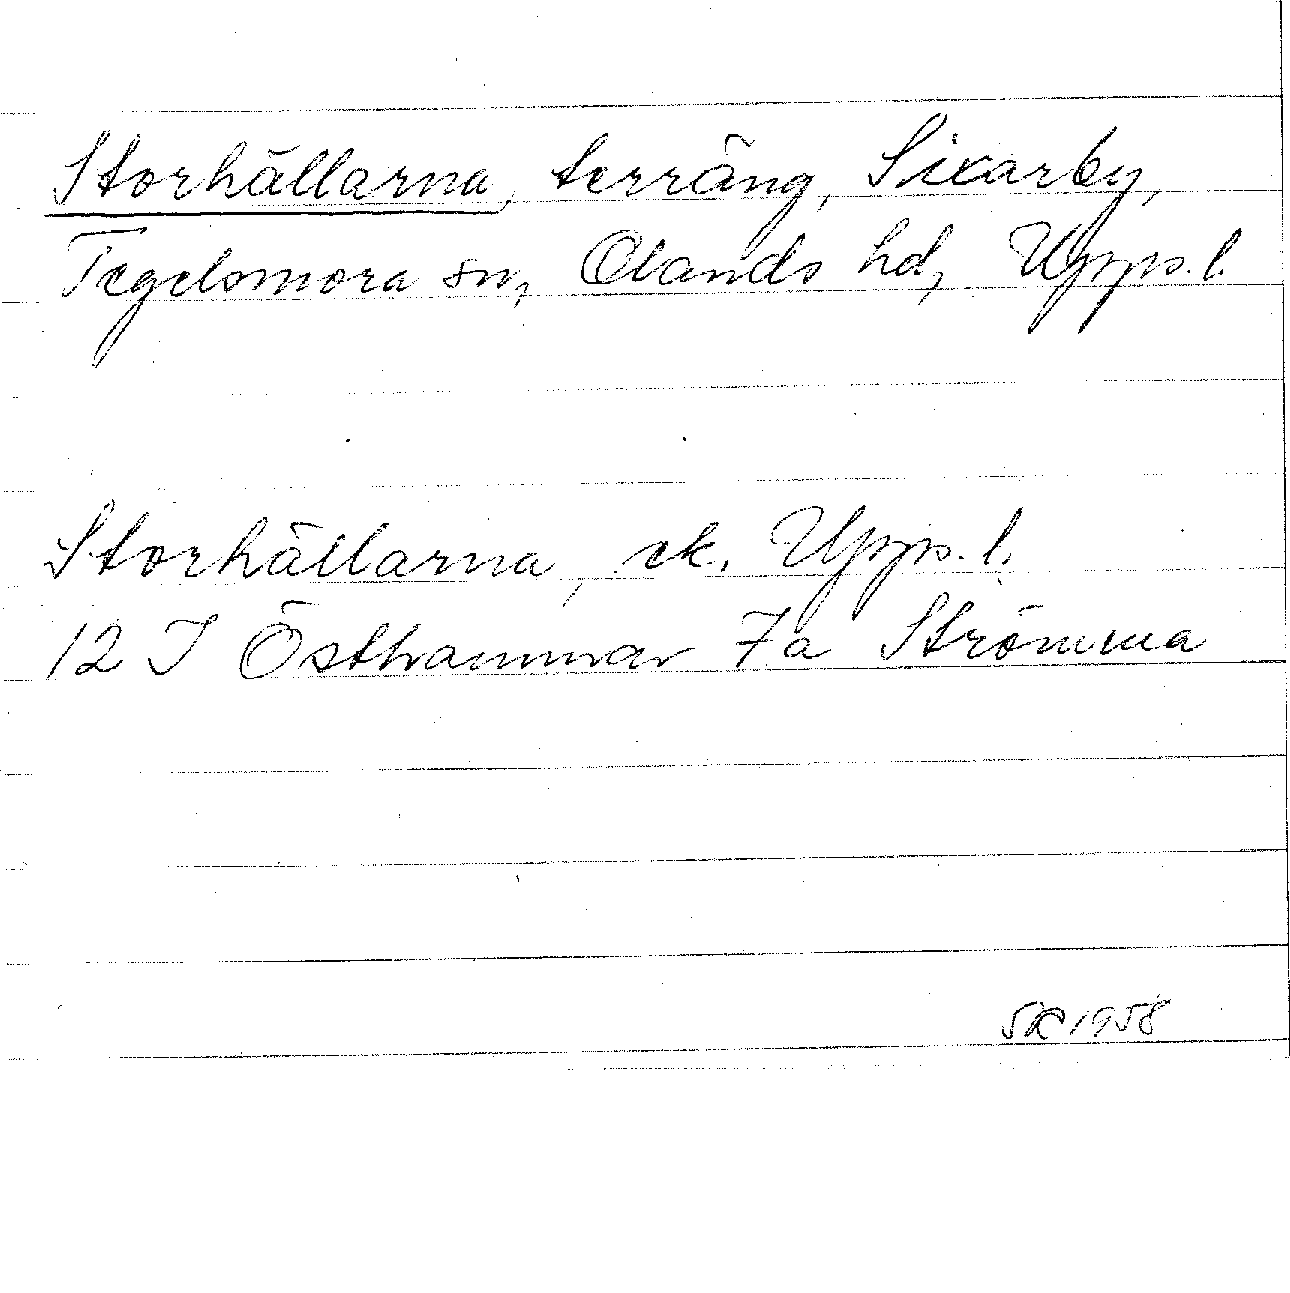 Storhällarna, terräng, Sixarby,
Tegelsmora sn, Olands hd, Upps. l.
Storhällarna, ek. Upps. l.
12 I Östhammar 7a Strömma
SK 1958